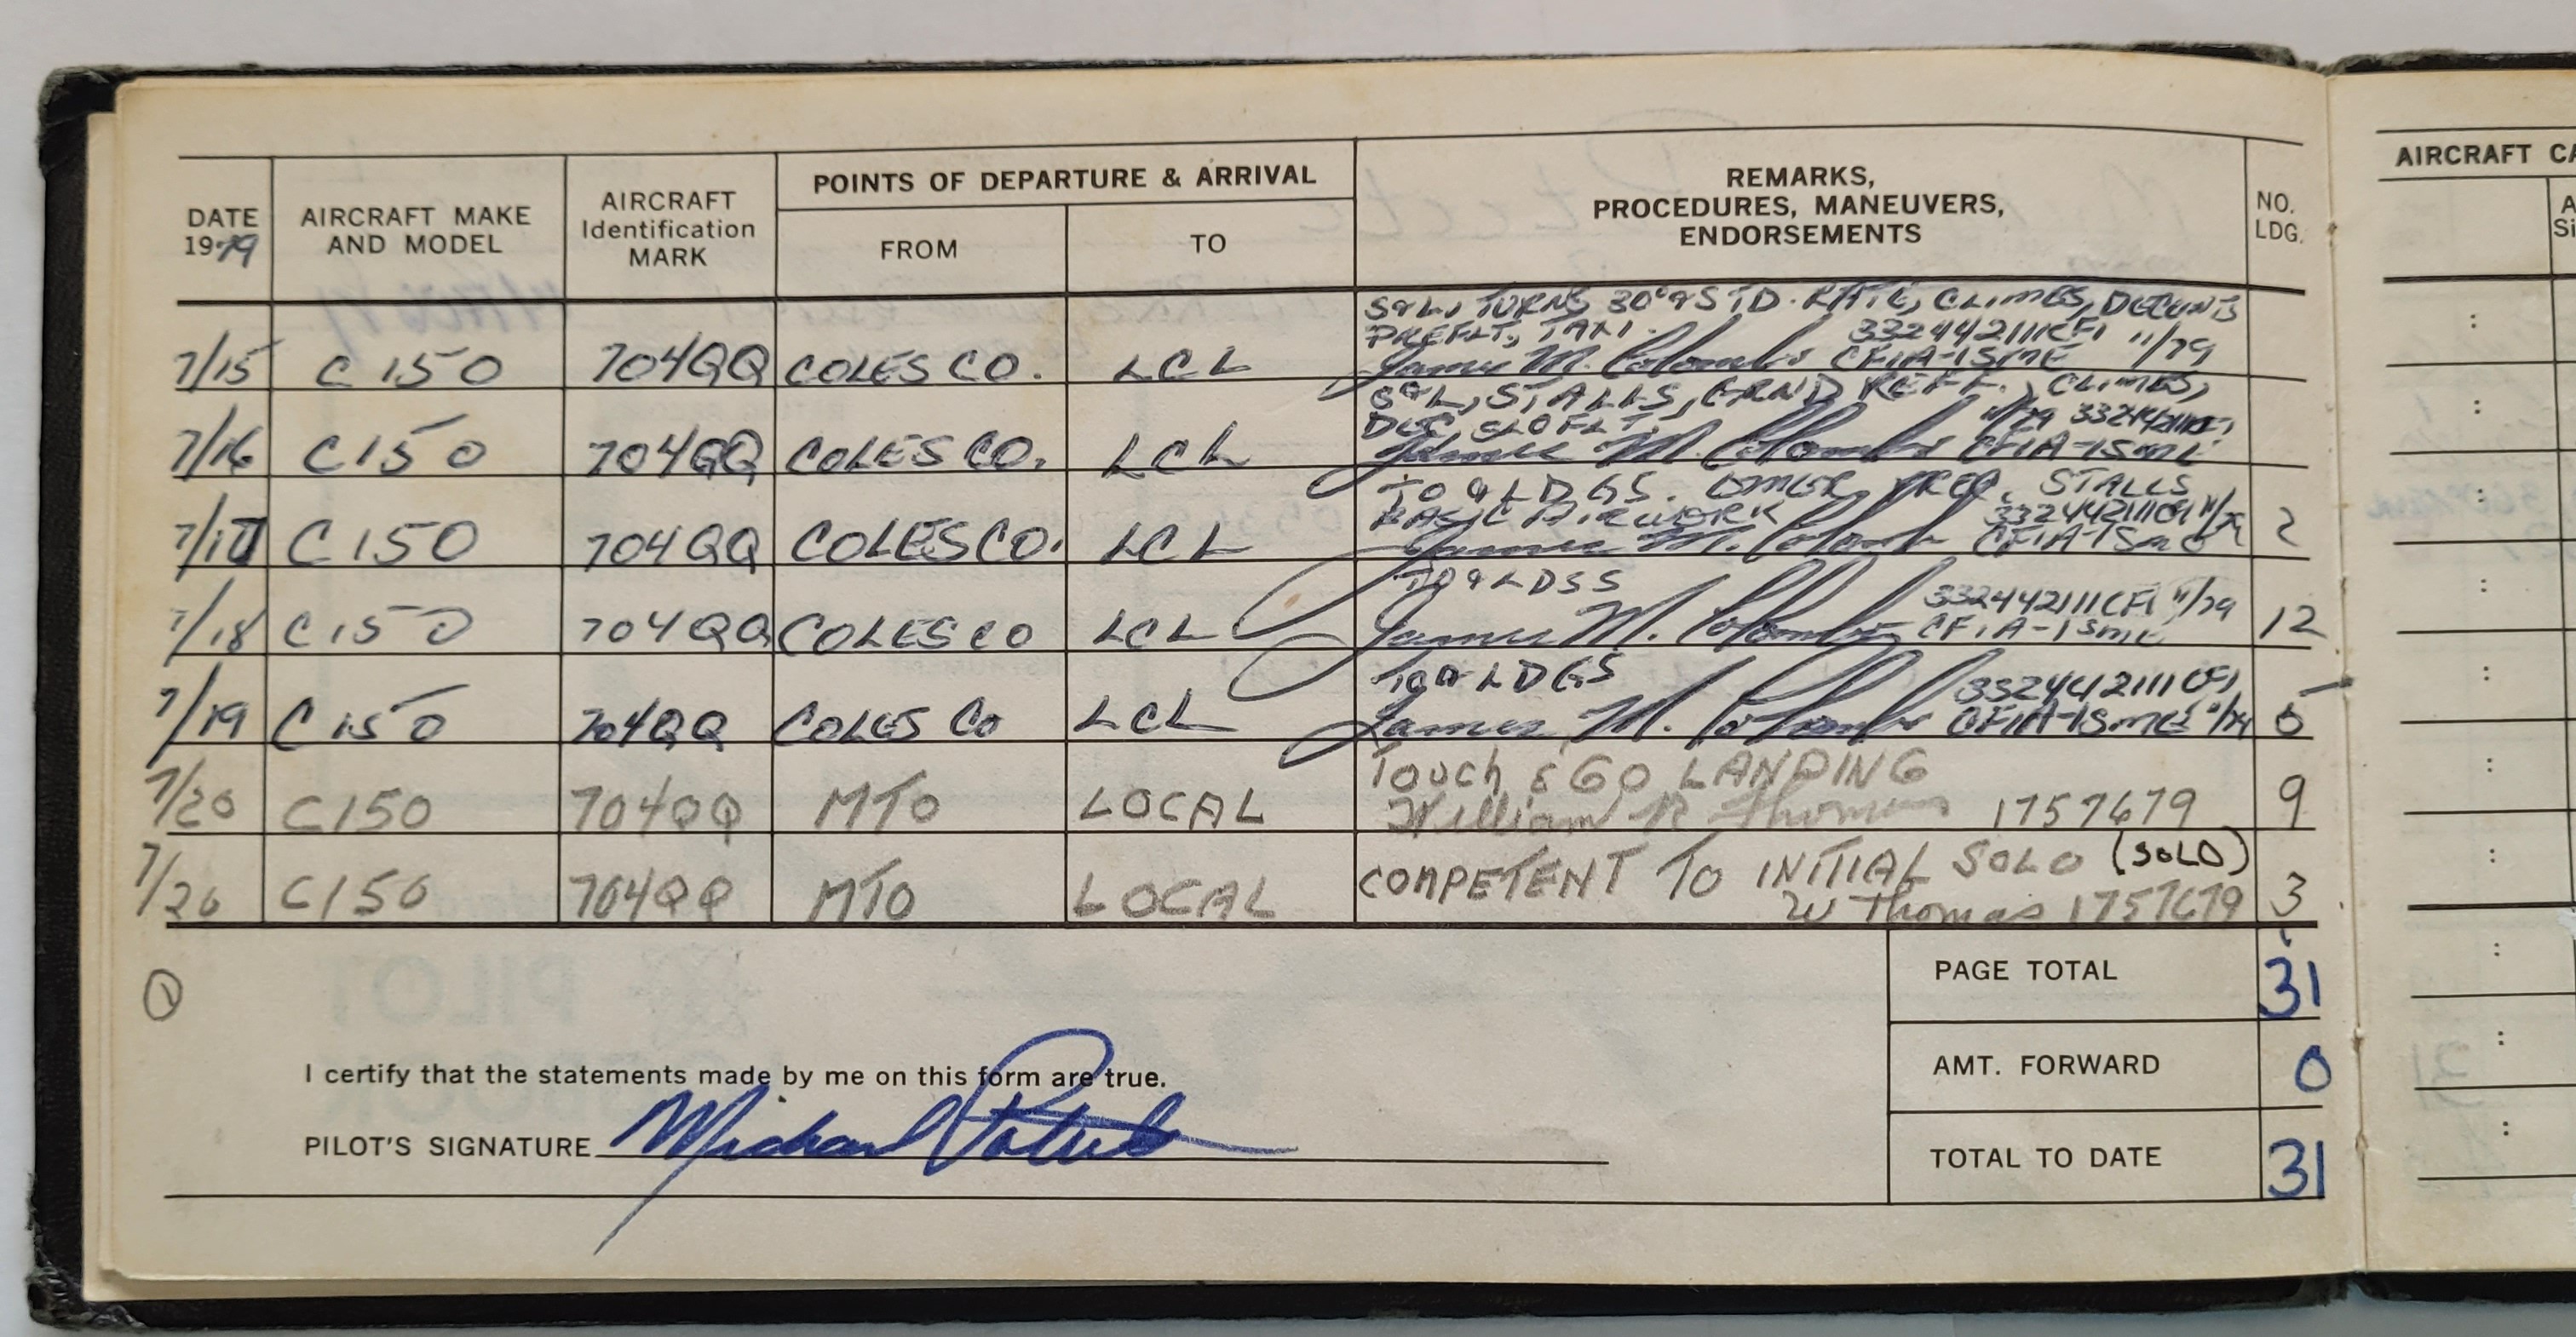 DATE 1979 AIRCRAFT MAKE AND MODEL AIRCRAFT Identification MARK POINTS OF DEPARTURE & ARRIVAL FROM TO REMARKS, PROCEDURES, MANEUVERS, ENDORSEMENTS NO. LDG.
AIRCRAFT
S&L, TURNS 30° & STD. RATE, CLIMBS,
PREFLT, TAXI. 332442111CFI 11/79
7/15 C150 704QQ COLES CO. LCL James M. Colombo CFIA-ISME
S&L, STALLS, GRND REFF., CLIMBS,
DEC, SLO FLT. 11/79 332442111
7/16 C150 704QQ COLES CO. LCL James M. Colombo CFIA-ISME
TO & LDGS. STALLS
BASIC AIRWORK 332442111CFI 11/79
7/17 C150 704QQ COLES CO. LCL James M. Colombo CFIA-ISME 2
TO & LDGS 332442111CFI 11/79
7/18 C150 704QQ COLES CO LCL James M. Colombo CFIA-ISME 12
TO & LDGS 332442111CFI
7/19 C150 704QQ COLES CO LCL James M. Colombo CFIA-ISME 11/79 5
Touch & GO LANDING
7/20 C150 704QQ MTO LOCAL William R Thomas 1757679 9
COMPETENT TO INITIAL SOLO (SOLO)
7/20 C150 704QQ MTO LOCAL W Thomas 1757679 3
PAGE TOTAL 31
1
AMT. FORWARD 0
I certify that the statements made by me on this form are true.
PILOT'S SIGNATURE Michael
TOTAL TO DATE 31